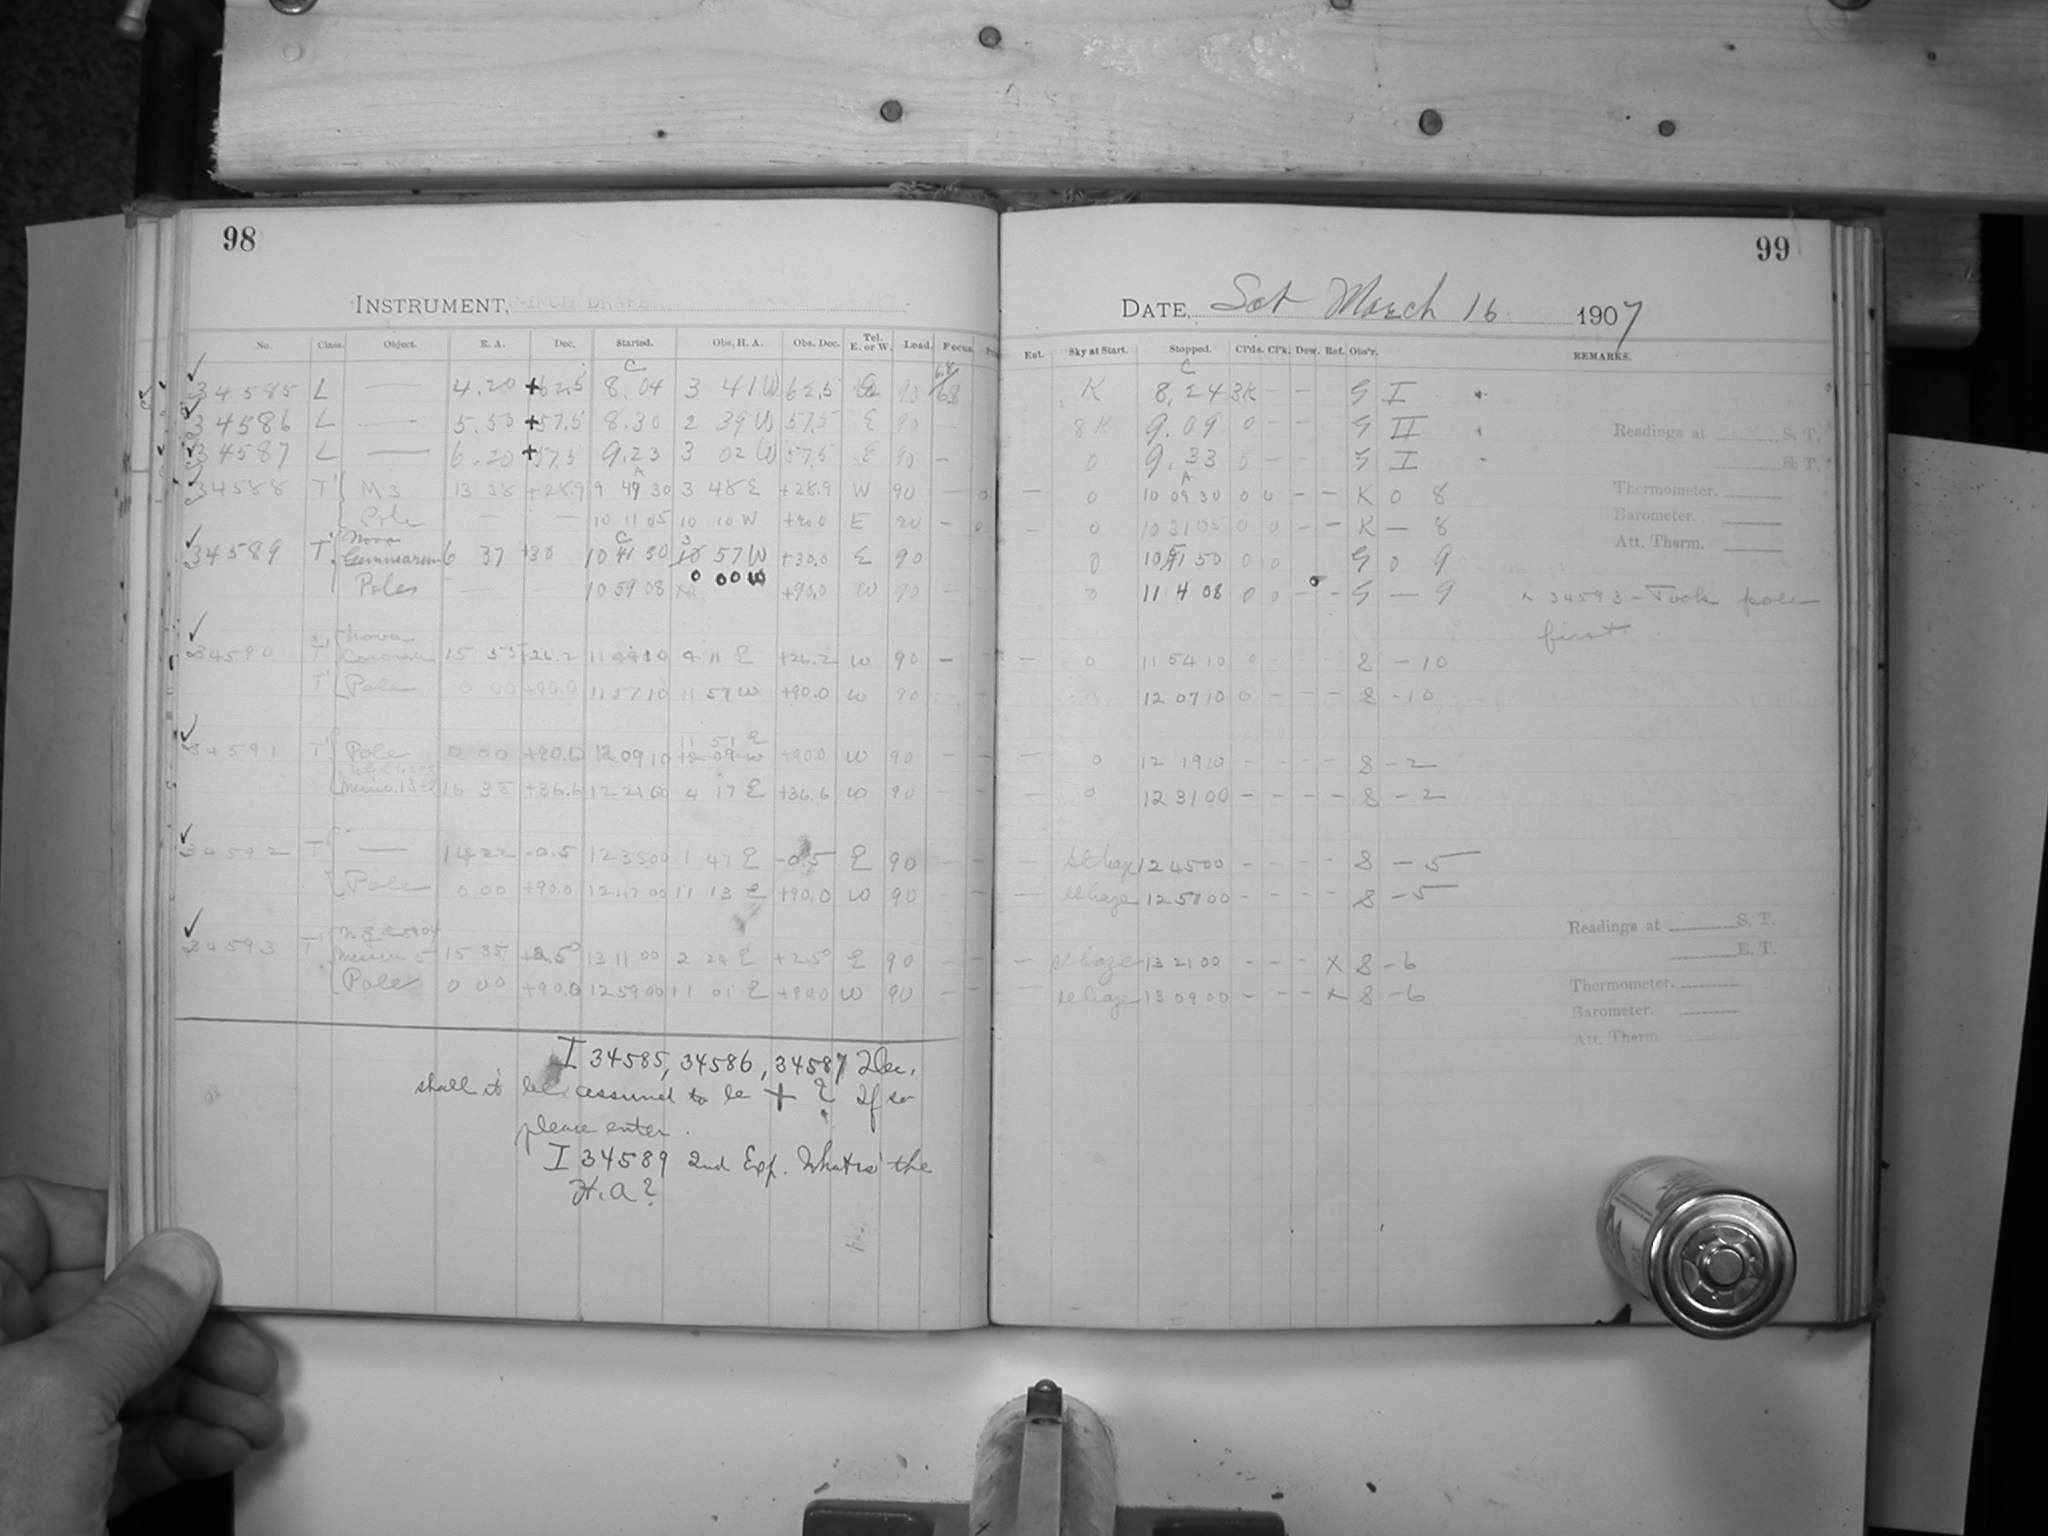 98
INSTRUMENT, 8-INCH DRAPER
No. Class. Object. R. A. Dec. Started. Obs. H. A. Obs. Dec. Tel. E. or W. Load. Focus.
34585 L — 4.20 +62.5 8.04 3 41 W 62.5 E 90 68
34586 L — 5.50 +57.5 8.30 2 39 W 57.5 E 90 —
34587 L — 6.20 +57.5 9.23 3 02 W 57.5 E 90 —
34588 T' M 3 13 38 +28.9 9 49 30 3 48 E +28.9 W 90 — 0
Pole — — 10 11 05 10 10 W +90.0 E 90 — 0
34589 T' Nova Geminorum 6 37 +30 10 41 50 3 57 W +30.0 E 90
Poles — — 10 59 08 0 00 W +90.0 W 90 —
34590 T' Nova Coronae 15 55 +26.2 11 44 10 4 11 E +26.2 W 90 —
T' Pole 0 00 +90.0 11 57 10 11 59 W +90.0 W 90
11 51 E
34591 T' Pole 0 00 +90.0 12 09 10 12 09 W +90.0 W 90 —
Messier 13 16 38 +36.6 12 21 00 4 17 E +36.6 W 90 —
34592 T' — 14 22 -0.5 12 35 00 1 47 E -0.5 E 90 —
Pole 0 00 +90.0 12 47 00 11 13 E +90.0 W 90 —
N.G.C. 5904
34593 T' Messier 5 15 35 +2.5 13 11 00 2 24 E +2.5 E 90 —
Pole 0 00 +90.0 12 59 00 11 01 E +90.0 W 90 —
I 34585, 34586, 34587 Dec.
shall it be assumed to be + ? If so
please enter.
I 34589 2nd Exp. What is the
H. A?
99
DATE, Sat March 16 1907
Ent. Sky at Start. Stopped. Cl'ds. Cl'k. Dew. Ref. Obs'r. REMARKS.
K 8.24 3K — — G I
8K 9.09 0 — — G II
0 9.33 0 — — G I
— 0 10 09 30 0 0 — — K 0 8
— 0 10 31 05 0 0 — — K — 8
0 10 51 50 0 0 G 0 9
0 11 4 08 0 0 — — G — 9 x 34593 - Took pole
first
— 0 11 54 10 0 — — — S — 10
0 12 07 10 0 — — — S — 10
— 0 12 19 10 — — — — S — 2
— 0 12 31 00 — — — — S — 2
— sl haze 12 45 00 — — — — S — 5
— sl haze 12 57 00 — — — — S — 5
— sl haze 13 21 00 — — — x S — 6
— sl haze 13 09 00 — — — x S — 6
Readings at S. T.
E. T.
Thermometer.
Barometer.
Att. Therm.
Readings at S. T.
E. T.
Thermometer.
Barometer.
Att. Therm.